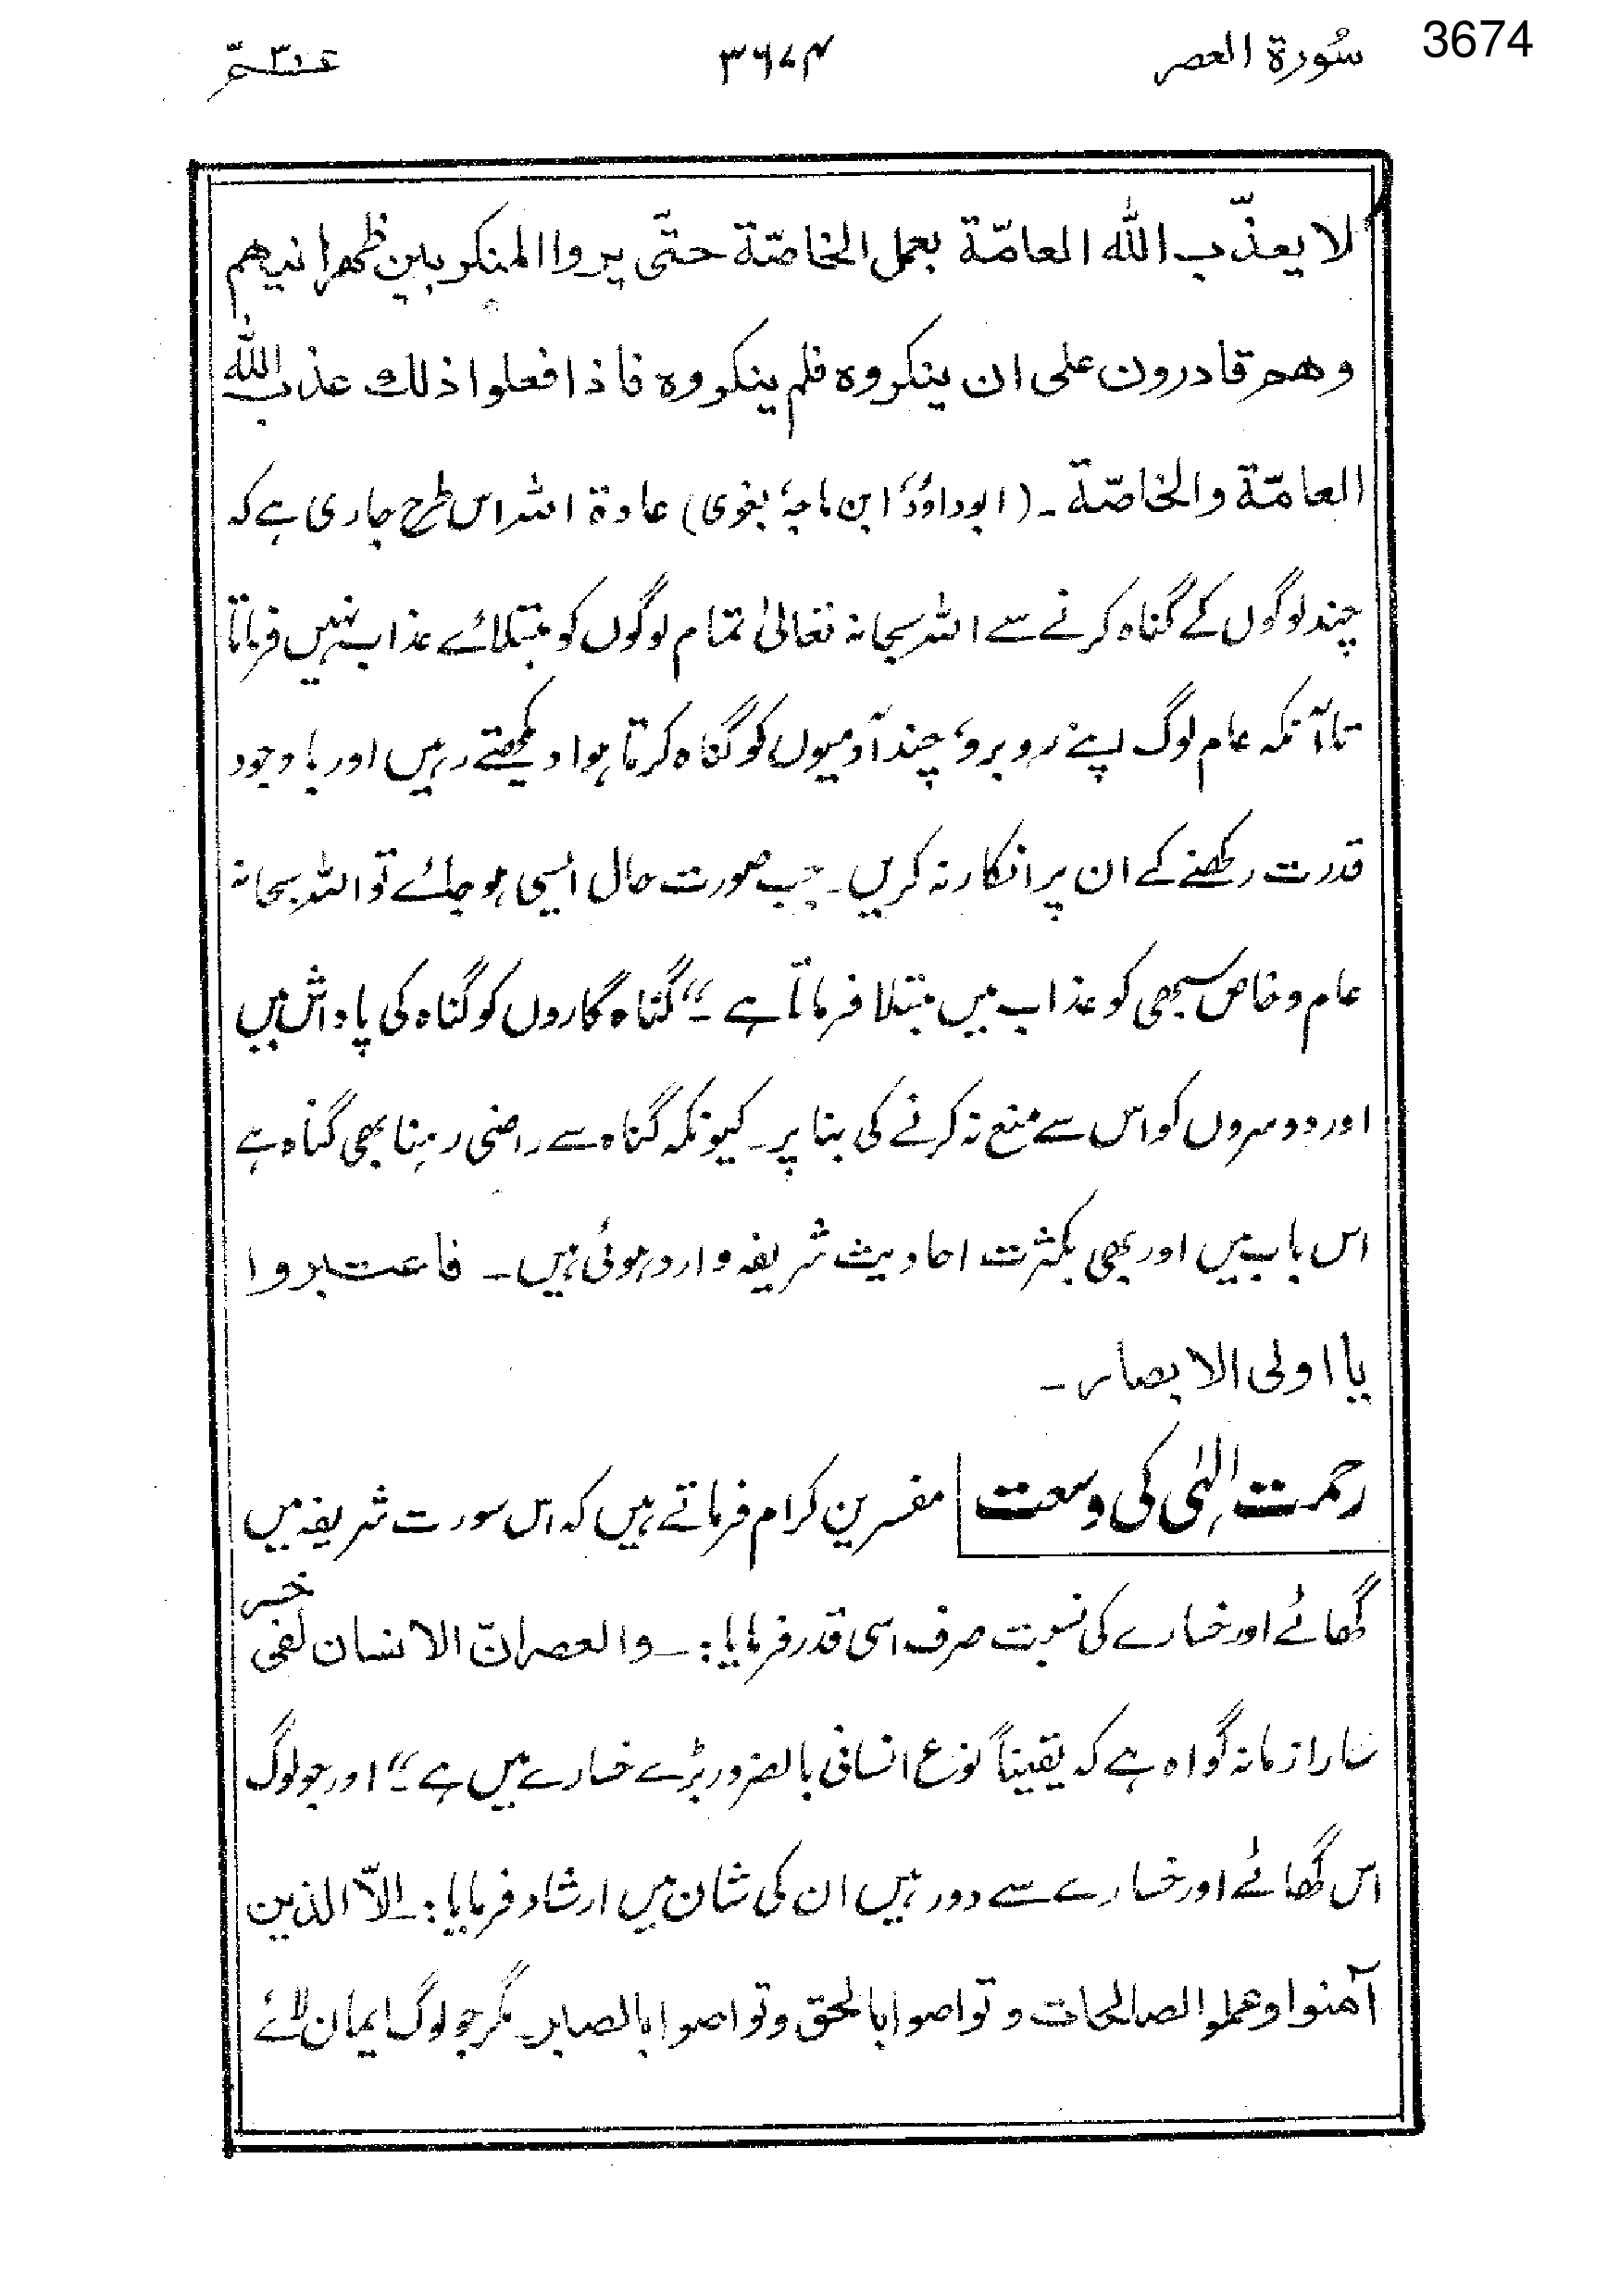 3674
سُورة العصر ۳۶۷۴ عـمّ ۳۰
لا يعذّب الله العامّة بعمل الخاصّة حتّى يروا المنكر بين ظهرانيهم
وهم قادرون على ان ينكروه فلم ينكروه فاذا فعلوا ذلك عذب الله
العامّة والخاصّة ـ (ابوداؤد، ابن ماجہ، بغوی) عادة اللہ اس طرح جاری ہے کہ
چند لوگوں کے گناہ کرنے سے اللہ سبحانہ تعالیٰ تمام لوگوں کو مبتلائے عذاب نہیں فرماتا
تاآنکہ عام لوگ اپنے روبرو، چند آدمیوں کو گناہ کرتا ہوا دیکھتے رہیں اور باوجود
قدرت رکھنے کے ان پر انکار نہ کریں۔ جب صورت حال ایسی ہو جائے تو اللہ سبحانہ
عام و خاص سبھی کو عذاب میں مبتلا فرماتا ہے ۔" گناہ گاروں کو گناہ کی پاداش میں
اور دوسروں کو اس سے منع نہ کرنے کی بنا پر۔ کیونکہ گناہ سے راضی رہنا بھی گناہ ہے
اس باب میں اور بھی بکثرت احادیث شریفہ وارد ہوئی ہیں۔ فاعتبروا
يا اولى الابصار ـ
رحمت الٰہی کی وسعت مفسرین کرام فرماتے ہیں کہ اس سورت شریفہ میں
گھاٹے اور خسارے کی نسبت صرف اسی قدر فرمایا :۔ والعصر انّ الانسان لفی خسر
سارا زمانہ گواہ ہے کہ یقیناً نوع انسانی بالضرور بڑے خسارے میں ہے ۔" اور جو لوگ
اس گھاٹے اور خسارے سے دور ہیں ان کی شان میں ارشاد فرمایا :۔ الاّ الذین
آمنوا وعملوا الصالحات وتواصوا بالحق وتواصوا بالصبر۔ مگر جو لوگ ایمان لائے